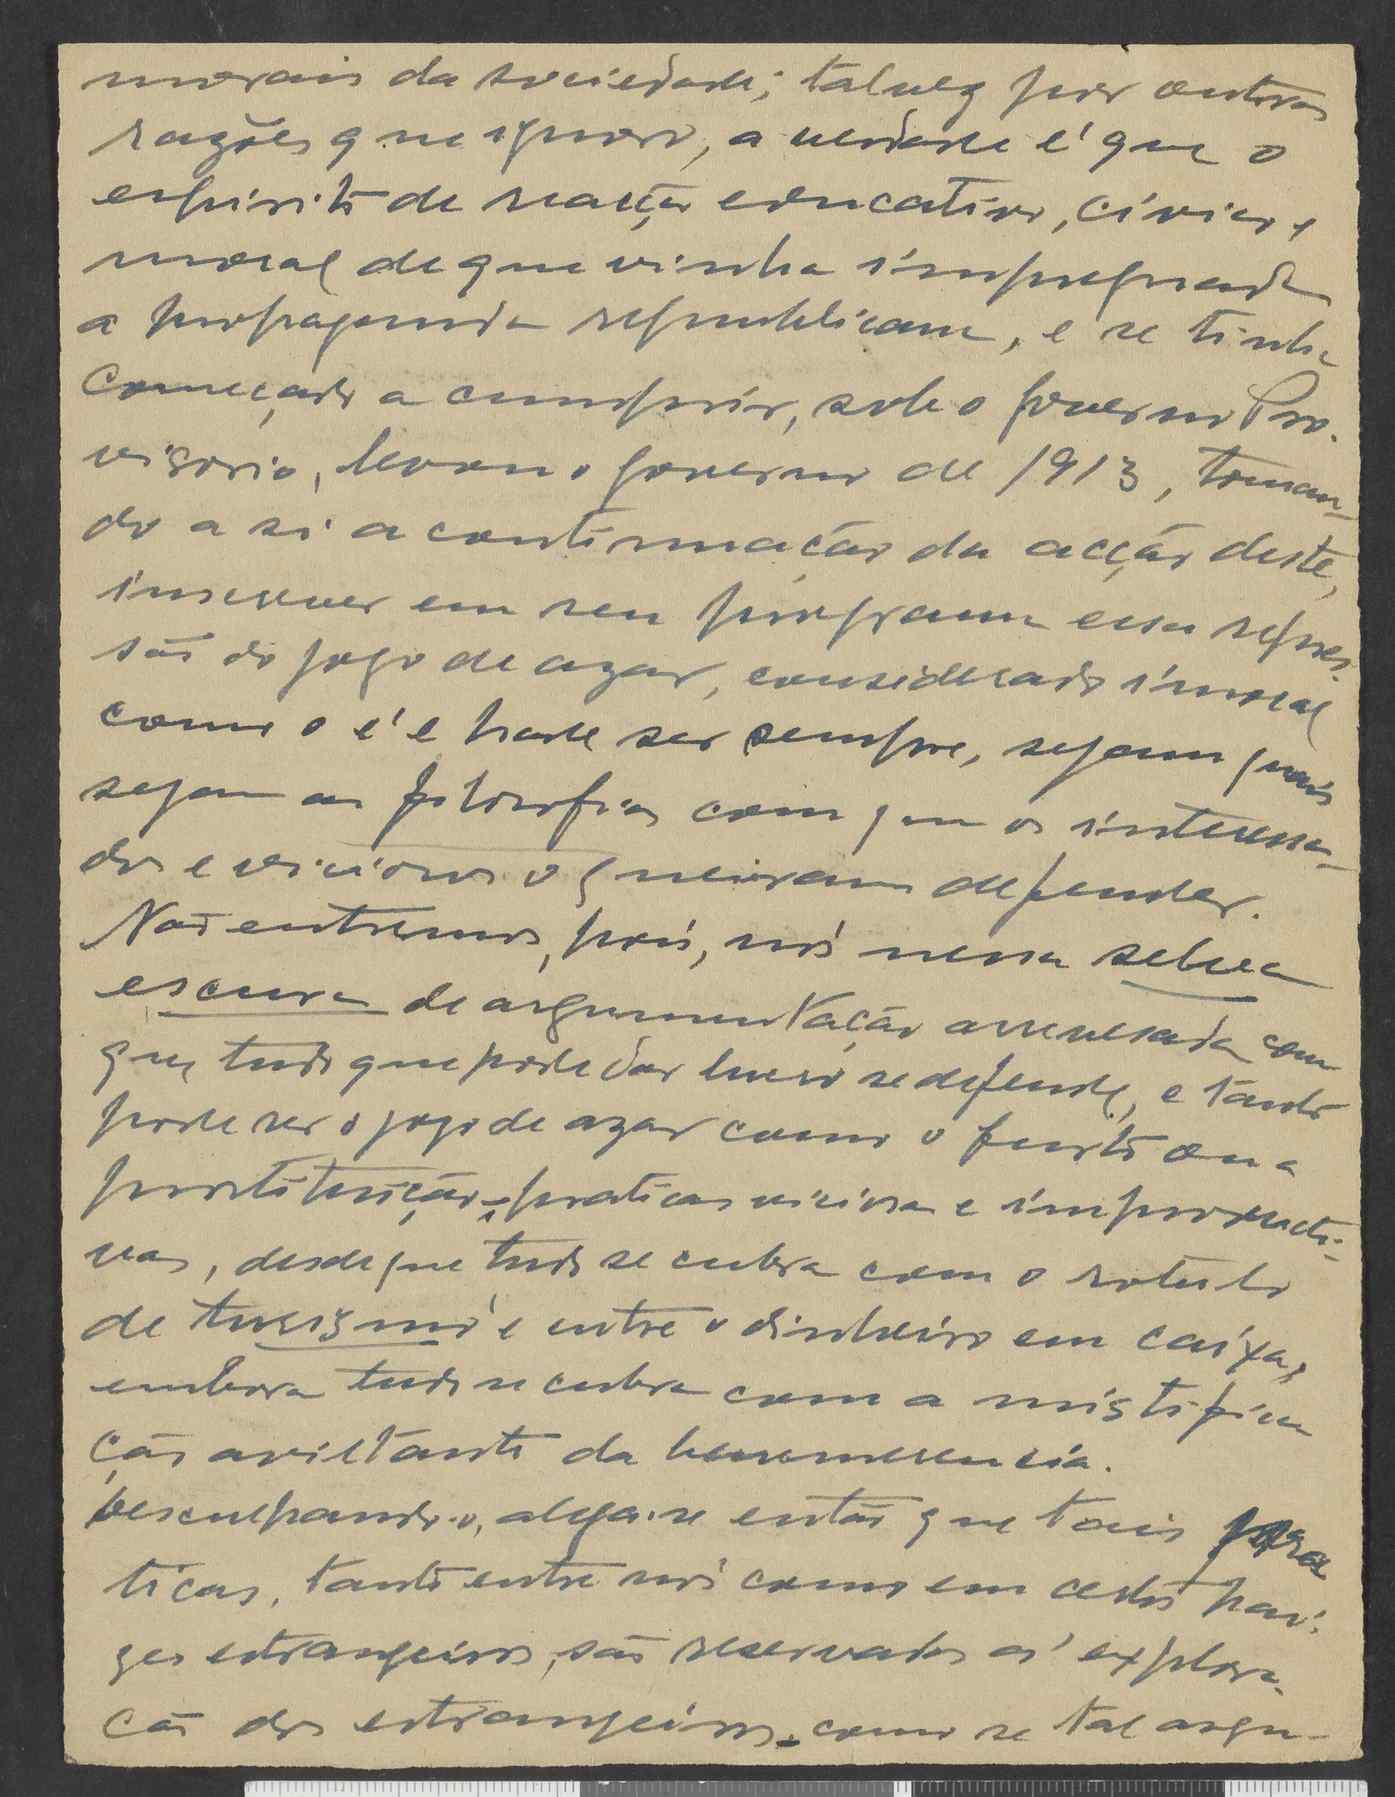 morais da sociedade; talvez por outras
razões que ignoro, a verdade é que o
espirito de reacção educativo, civico e
moral de que vinha impregnada
a propaganda republicana, e se tinha
começado a cumprir, sob o governo Pro-
visorio, levou o governo de 1913, toman-
do a si a continuação da acção deste,
inscrever em seu programa essa repres-
são do jogo de azar, considerado imoral
como o é e hade ser sempre, sejam quais
sejam as filosofias com que os interessa-
dos e viciosos o queiram defender.
Não entremos, pois, nós nessa selva
escura de argumentação arrevesada com
que tudo que pode dar lucro se defende, e tanto
pode ser o jogo de azar como o furto ou a
prostituição, praticas viciosas e improducti-
vas, desde que tudo se cubra com o rotulo
de turismo e entre o dinheiro em caixa,
embora tudo se cubra com a mistifica
ção aviltante da benemerencia.
Desculpando-o, alega-se então que tais pra
ticas, tanto entre nós como em certos pai-
zes estrangeiros, são reservadas á explora-
ção dos estrangeiros, como se tal argu-